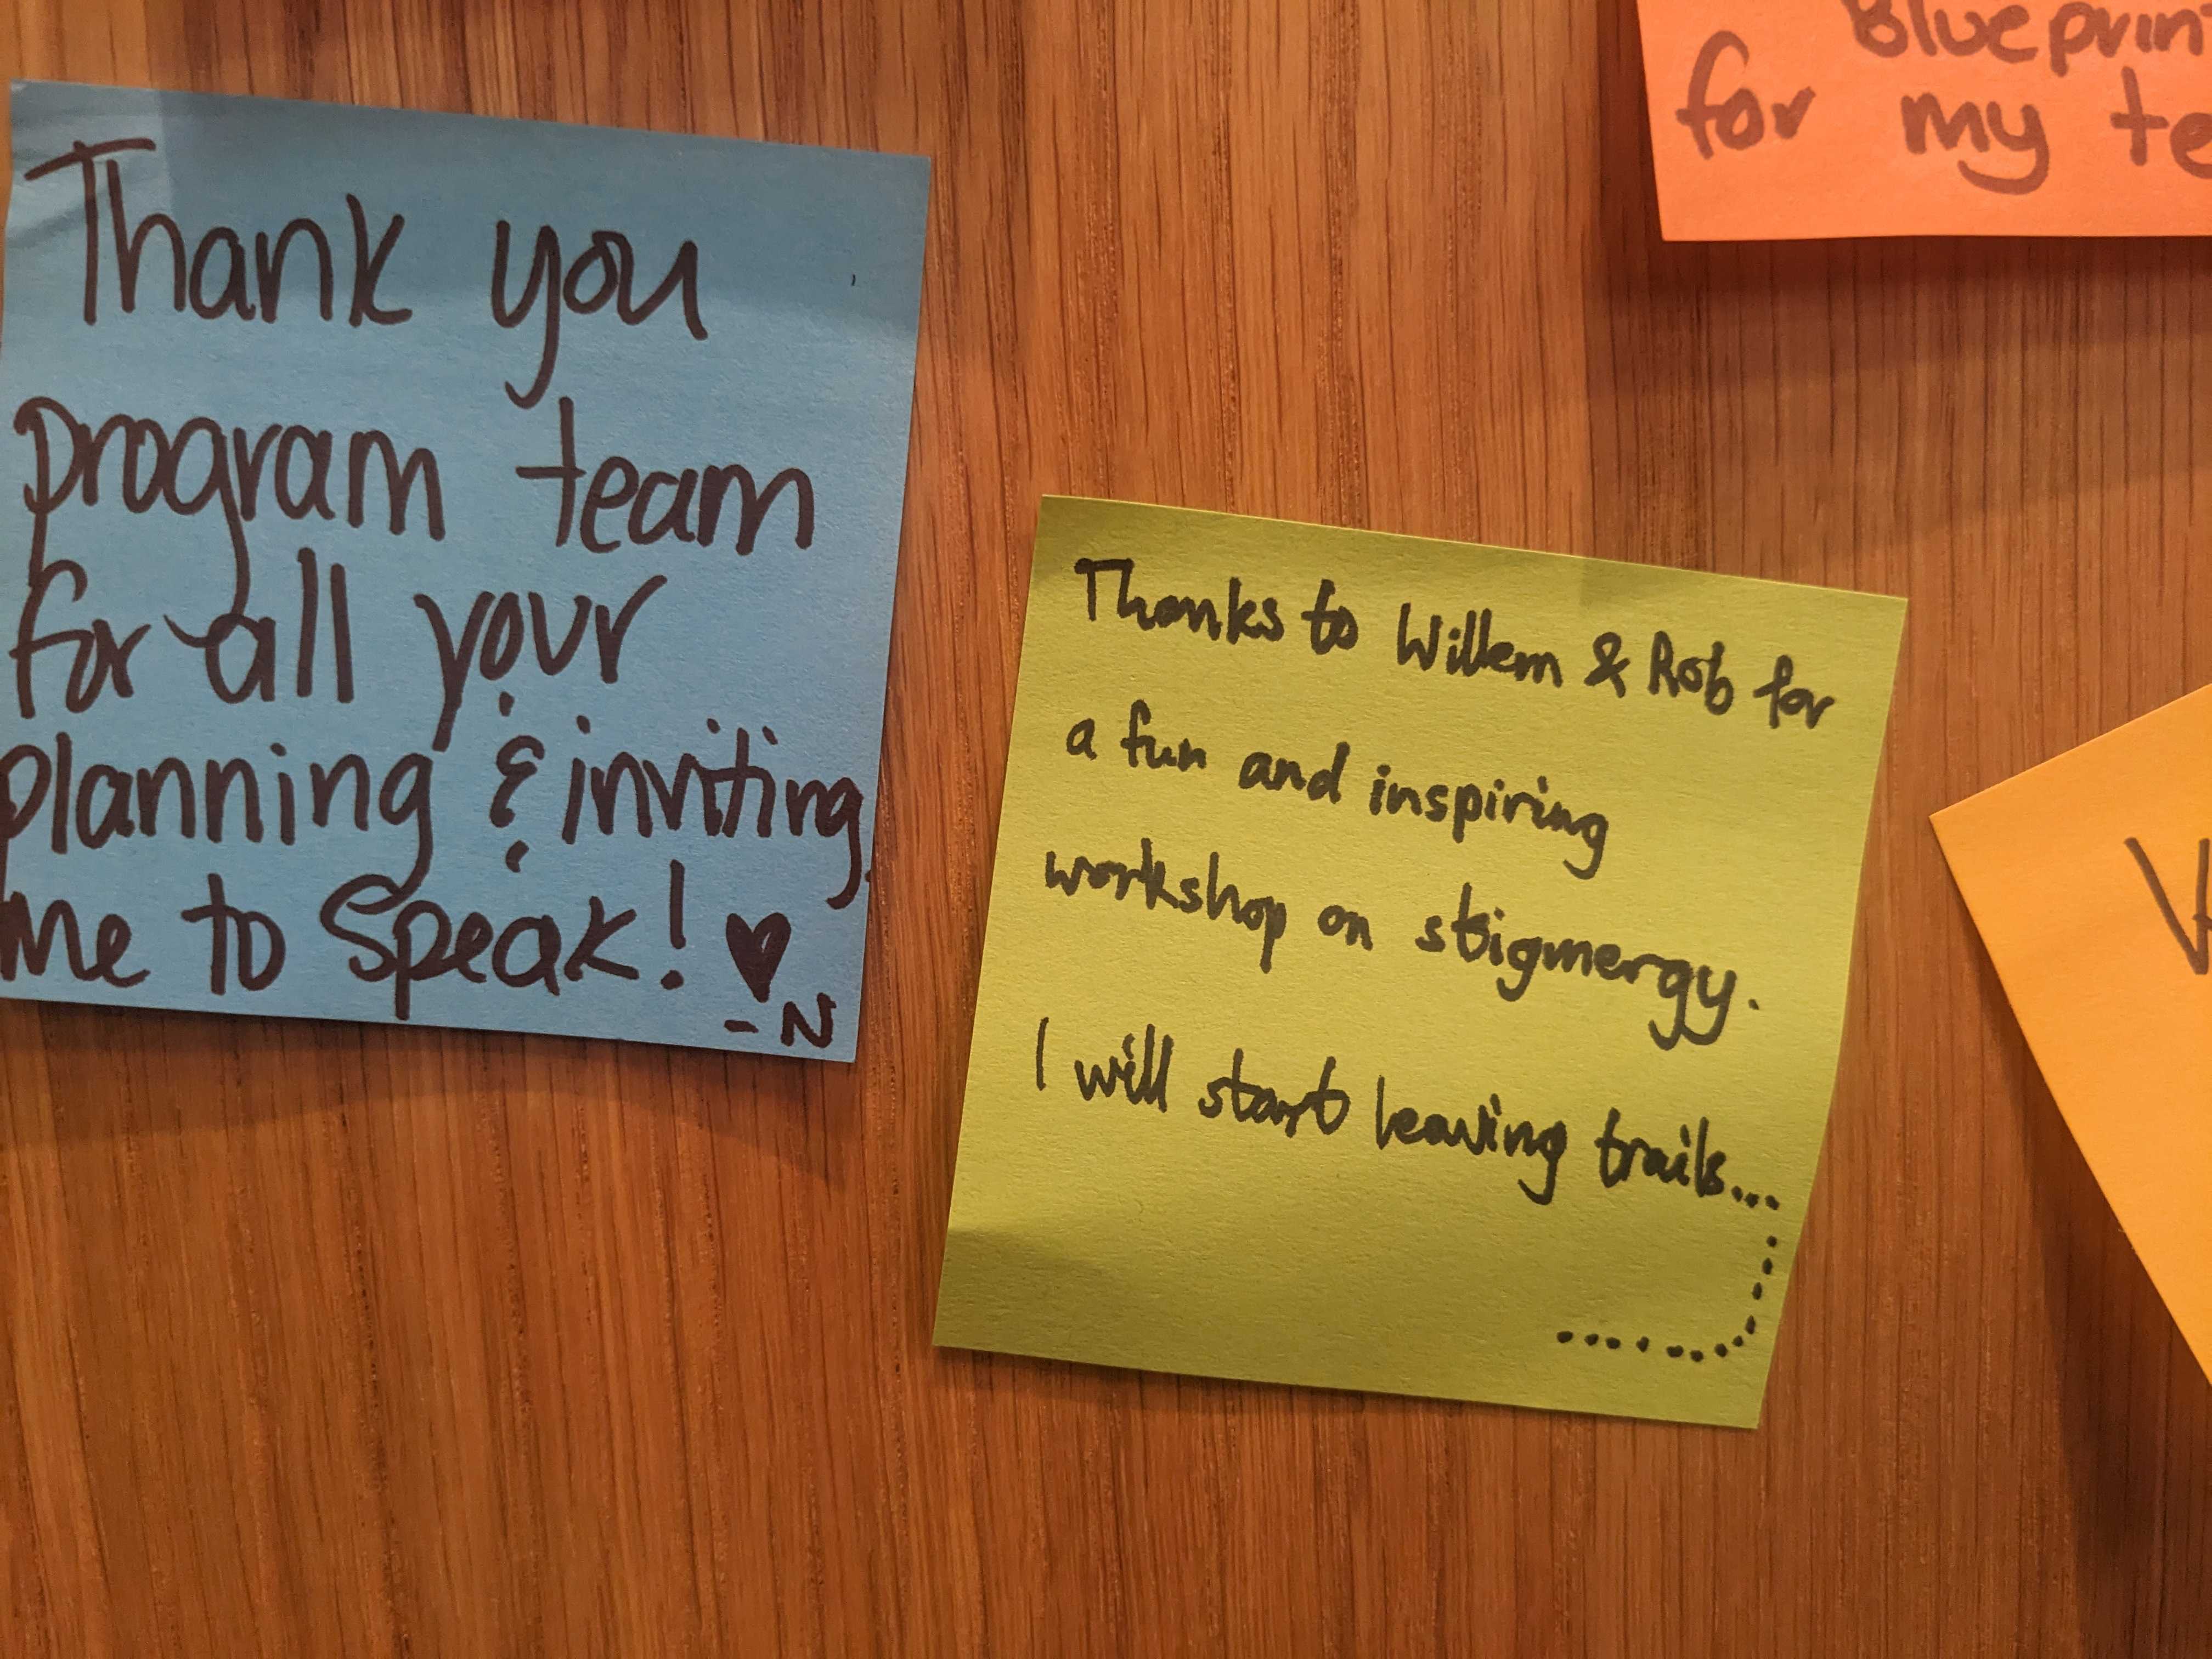 Thank you
program team
for all your
planning & inviting
me to Speak! ♥
- N
Thanks to Willem & Rob for
a fun and inspiring
workshop on stigmergy.
I will start leaving trails...
for my